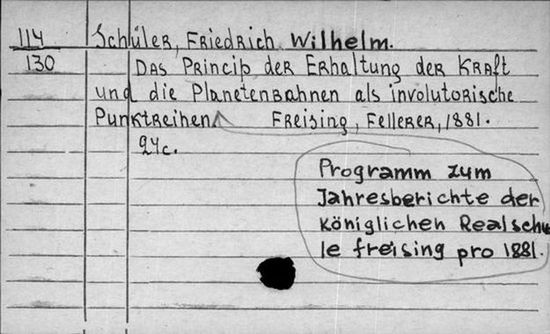 114 Schüler, Friedrich Wilhelm.
130 Das Princip der Erhaltung der Kraft
und die Planetenbahnen als involutorische
Punktreihen Freising, Fellerer, 1881.
24c.
Programm zum
Jahresberichte der
Königlichen Realschu
le freising pro 1881.